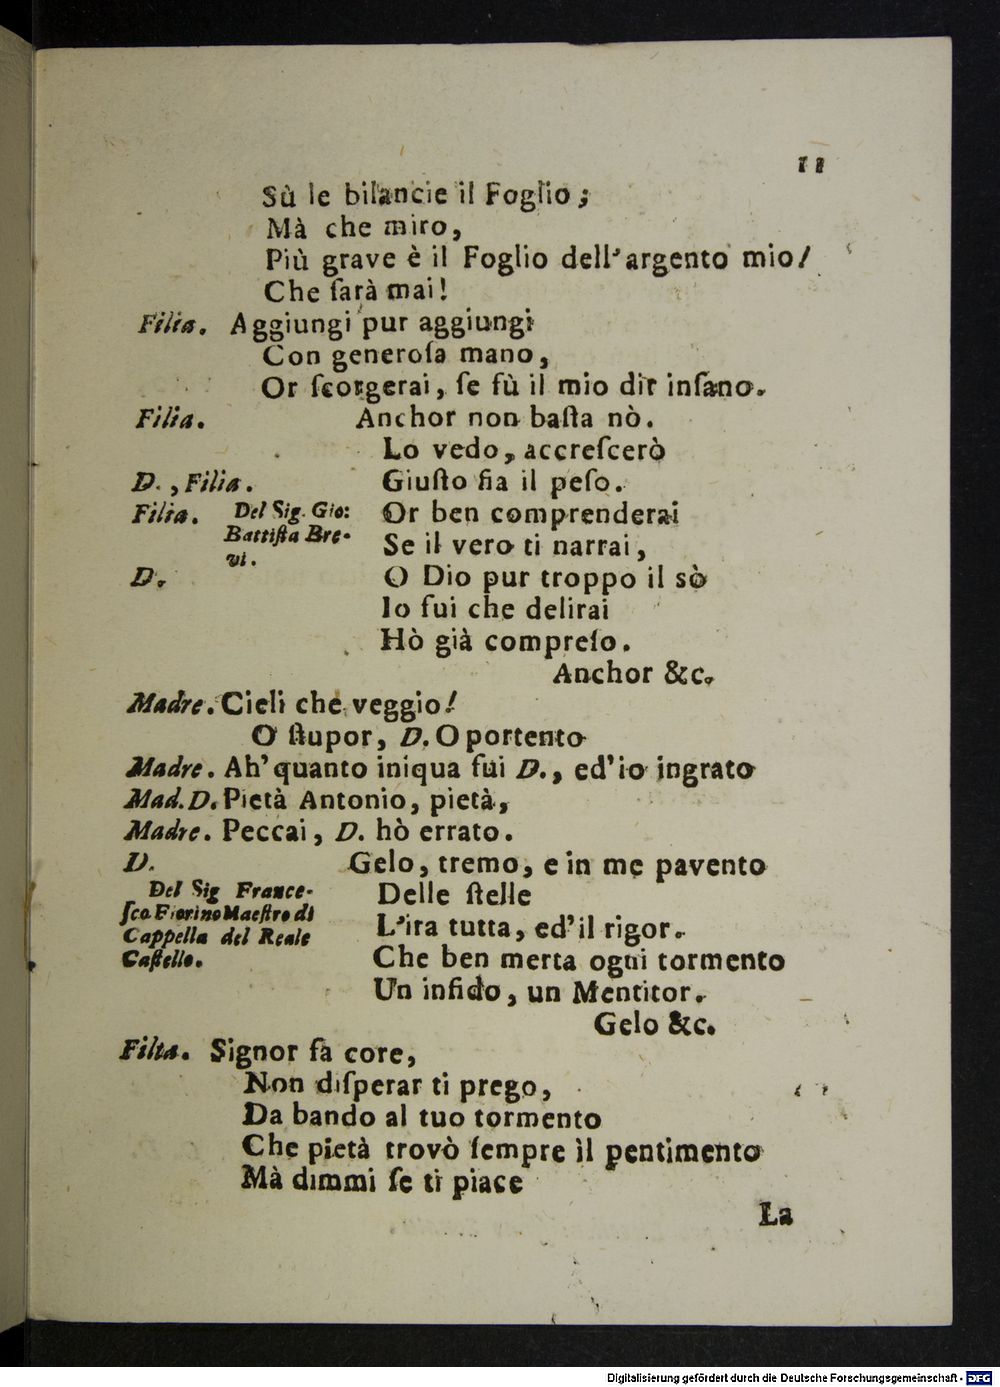 11
Sù le bilancie il Foglio;
Mà che miro,
Più grave è il Foglio dell'argento mio!
Che ſarà mai!
Filia. Aggiungi pur aggiungi
Con generoſa mano,
Or ſcorgerai, ſe fù il mio dir inſano.
Filia. Anchor non baſta nò.
Lo vedo, accreſcerò
D., Filia. Giuſto fia il peſo.
Filia. Del Sig. Gio: Or ben comprenderai
Battiſta Bre- Se il vero ti narrai,
vi.
D. O Dio pur troppo il sò
Io fui che delirai
Hò già compreſo.
Anchor &c.
Madre. Cieli che veggio!
O ſtupor, D. O portento
Madre. Ah' quanto iniqua fui D., ed'io ingrato
Mad. D. Pietà Antonio, pietà,
Madre. Peccai, D. hò errato.
D. Gelo, tremo, e in me pavento
Del Sig France- Delle ſtelle
ſco Fiorino Maeſtro di L'ira tutta, ed'il rigor.
Cappella del Reale
Caſtello. Che ben merta ogni tormento
Un infido, un Mentitor.
Gelo &c.
Filia. Signor fà core,
Non diſperar ti prego,
Da bando al tuo tormento
Che pietà trovò ſempre il pentimento
Mà dimmi ſe ti piace
La
Digitalisierung gefördert durch die Deutsche Forschungsgemeinschaft - DFG